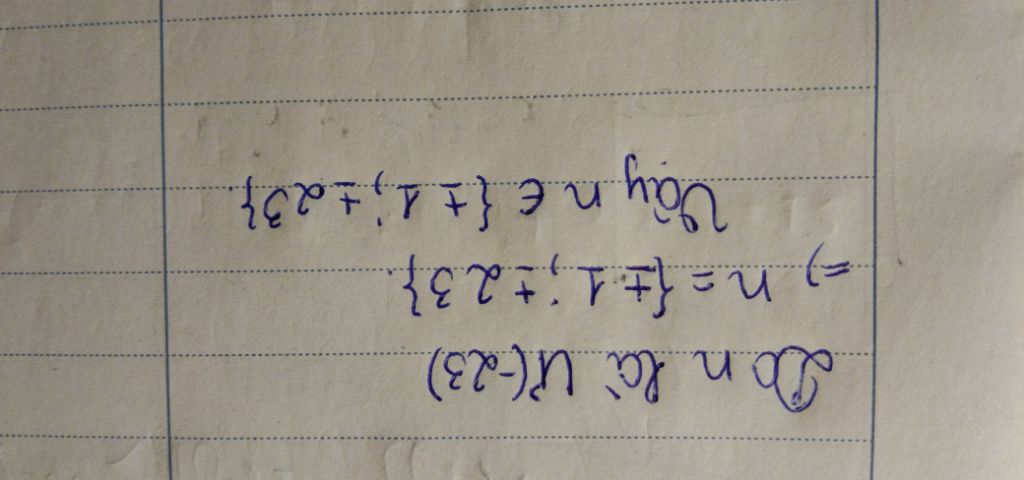 Do n là Ư(-23)
=) n = {±1; ±23}.
Vậy n ∈ {±1; ±23}.